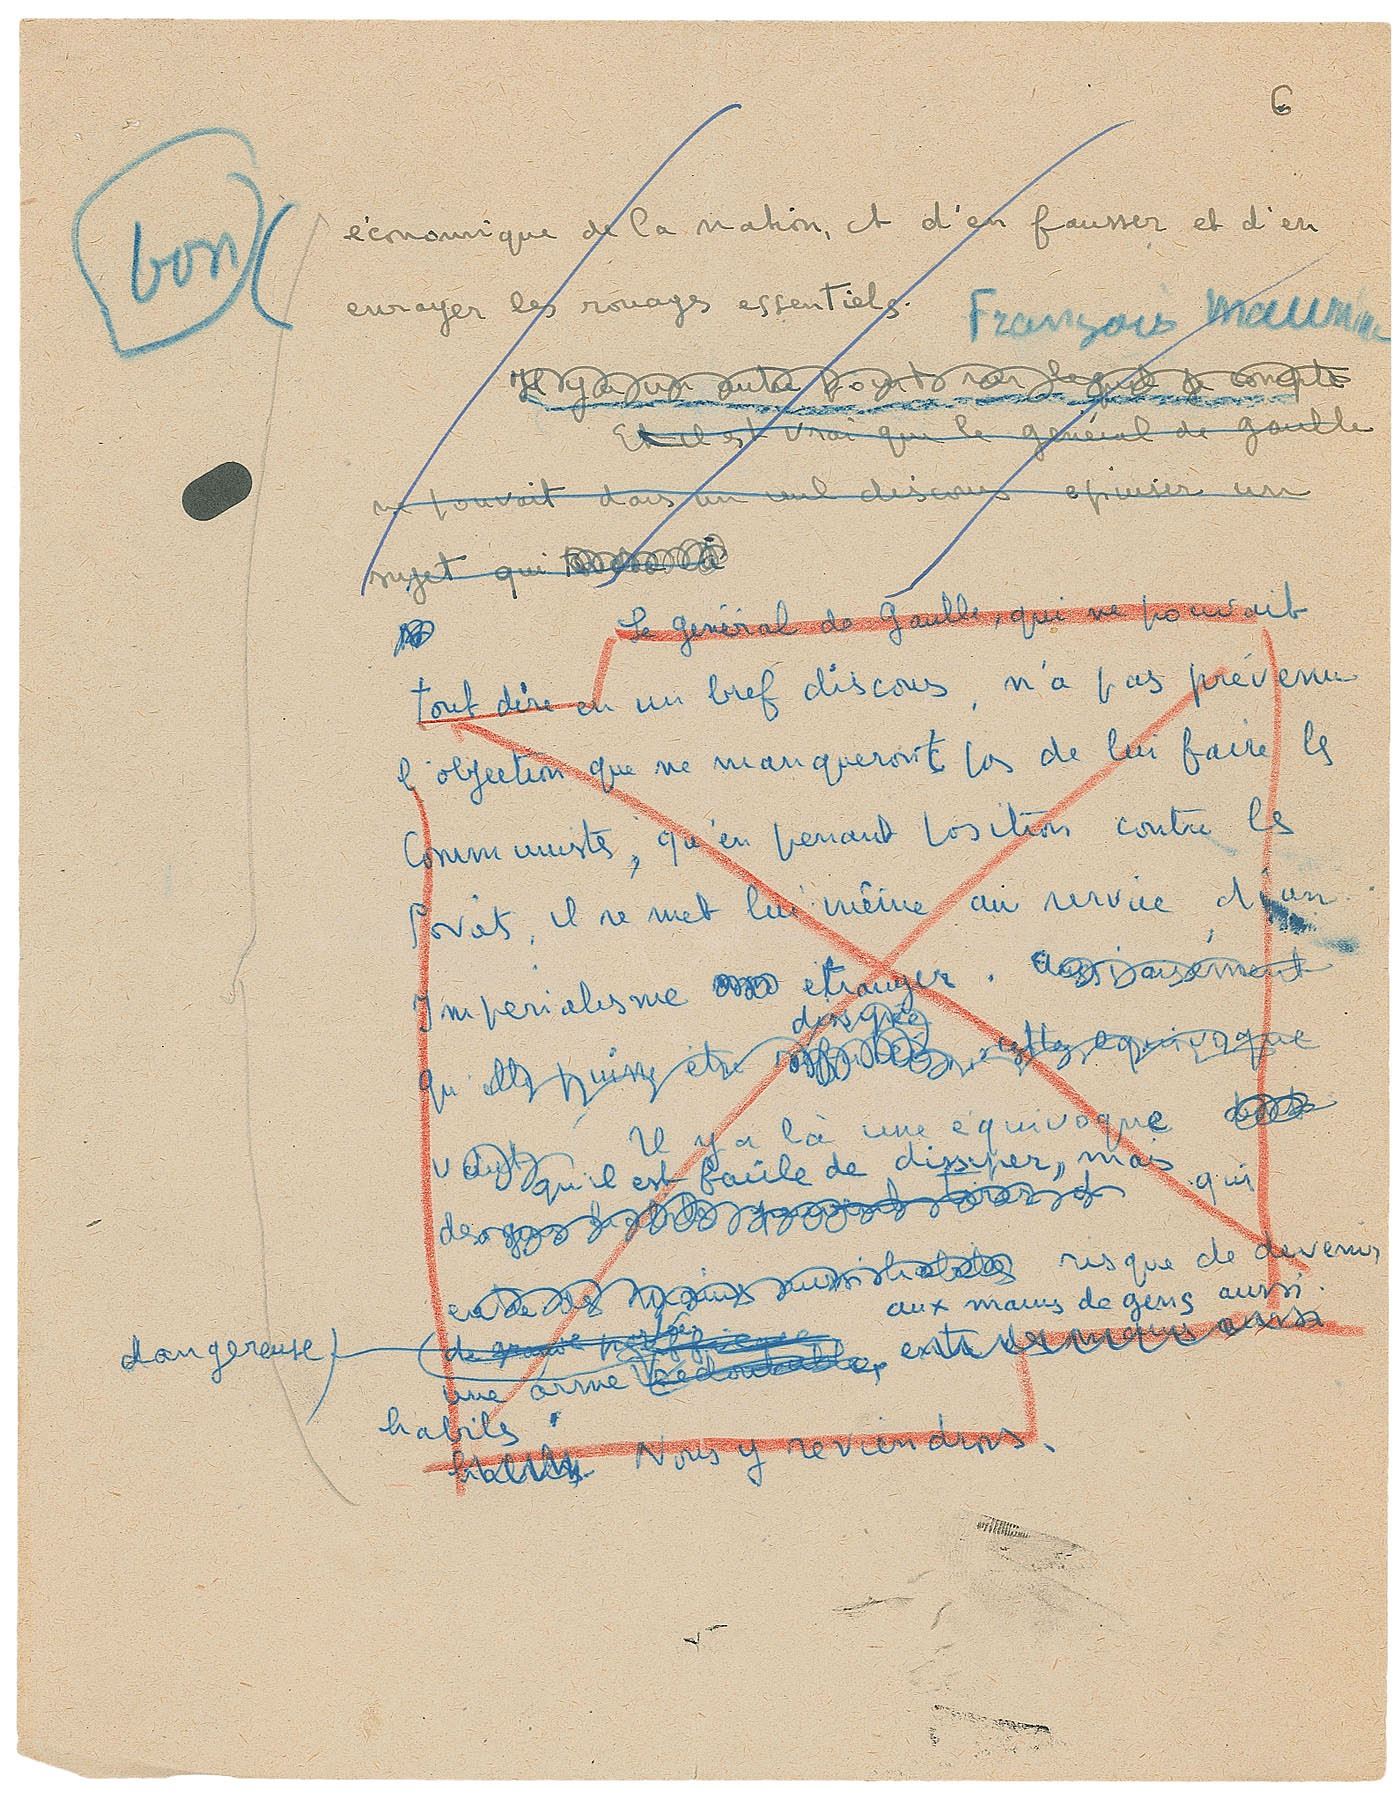 6
bon
économique de la nation, et d'en fausser et d'en
enrayer les rouages essentiels.
François Mauriac
Il y a un autre point sur lequel je compte
Et il est vrai que le général de Gaulle
ne pouvait dans un seul discours épuiser un
sujet qui touche à
Le général de Gaulle, qui ne pouvait
tout dire en un bref discours, n'a pas prévenu
l'objection que ne manqueront pas de lui faire les
Communistes, qu'en prenant position contre les
Soviets, il se met lui même au service d'un
Impérialisme étranger. Aussi aisément
dissipée
qu'elle puisse être cette équivoque
Il y a là une équivoque
qu'il est facile de dissiper, mais qui
des
entre des mains aussi habiles risque de devenir
aux mains de gens aussi
dangereuse
de grave
une arme redoutable, entre des mains aussi
habiles.
habiles. Nous y reviendrons.